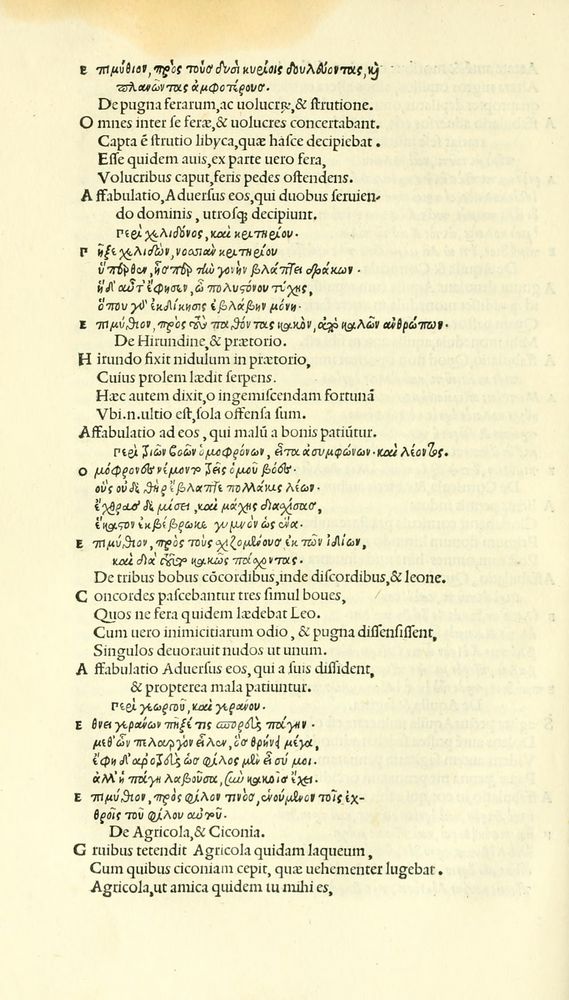 Ε πιμύθιον, πρὸς τοὺς δυσὶ κυρίοις δουλεύοντας, καὶ
πλανῶντας ἀμφοτέρους.
De pugna ferarum, ac uolucrę, & strutione.
O mnes inter se feræ, & uolucres concertabant.
Capta ē strutio libyca, quæ hasce decipiebat.
Esse quidem auis, ex parte uero fera,
Volucribus caput, feris pedes ostendens.
A ffabulatio, Aduersus eos, qui duobus seruien-
do dominis, utrosq; decipiunt.
Περὶ χελιδόνος, καὶ κριτηρίου.
Π ῆξε χελιδὼν νοσσιὰν κριτηρίου
ὕπερθεν, ἧσπερ τὴν γονὴν βλάπτει δράκων.
ἡ δ' αὖτ' ἔφησεν, ὦ πολυστόνου τύχης,
ὅπου γὰρ ἐκδίκησις ἐβλάβην μόνη.
Ε πιμύθιον, πρὸς τοὺς παθόντας κακὸν, ἀπὸ καλῶν ἀνθρώπων.
De Hirundine, & prætorio.
H irundo fixit nidulum in prætorio,
Cuius prolem lædit serpens.
Hæc autem dixit, o ingemiscendam fortunā
Vbi.n.ultio est, sola offensa sum.
Affabulatio ad eos, qui malū a bonis patiūtur.
Περὶ τριῶν βοῶν ὁμοφρόνων, εἶτα ἀσυμφώνων. καὶ λέοντος.
Ο μόφρονες νέμοντο τρεῖς ὁμοῦ βόες.
οὓς οὐδὲ θὴρ ἔβλαπτε πολλάκις λέων.
ἔχθρας δὲ μίσει, καὶ μάχης διαχίσας,
ἕκαστον ἐκβέβρωκε γυμνὸν ὡς ἕνα.
Ε πιμύθιον, πρὸς τοὺς χιζομένους ἐκ τῶν ἰδίων,
καὶ διὰ τοῦτο κακῶς πάσχοντας.
De tribus bobus cōcordibus, inde discordibus, & leone.
C oncordes pascebantur tres simul boues,
Quos ne fera quidem lædebat Leo.
Cum uero inimicitiarum odio, & pugna dissensissent,
Singulos deuorauit nudos ut unum.
A ffabulatio Aduersus eos, qui a suis dissident,
& propterea mala patiuntur.
Περὶ γεωργοῦ, καὶ γεράνου.
Ε θνει γεράνων πῆξέ τις σπορεὺς πάγην.
μεθ' ὧν πελαργὸν εἷλεν, ὃς θρήνει μέγα,
ἔφη δ' ἀροτρεὺς ὡς φίλος μὲν εἶ σύ μοι.
ἀλλ' ἡ πάγη λαβοῦσα, σὺν κακοῖς ἔχει.
Ε πιμύθιον, πρὸς φίλον τινὸς, ἑνούμενον τοῖς ἐχ-
θροῖς τοῦ φίλου αὐτοῦ.
De Agricola, & Ciconia.
G ruibus tetendit Agricola quidam laqueum,
Cum quibus ciconiam cepit, quæ uehementer lugebat.
Agricola, ut amica quidem tu mihi es,